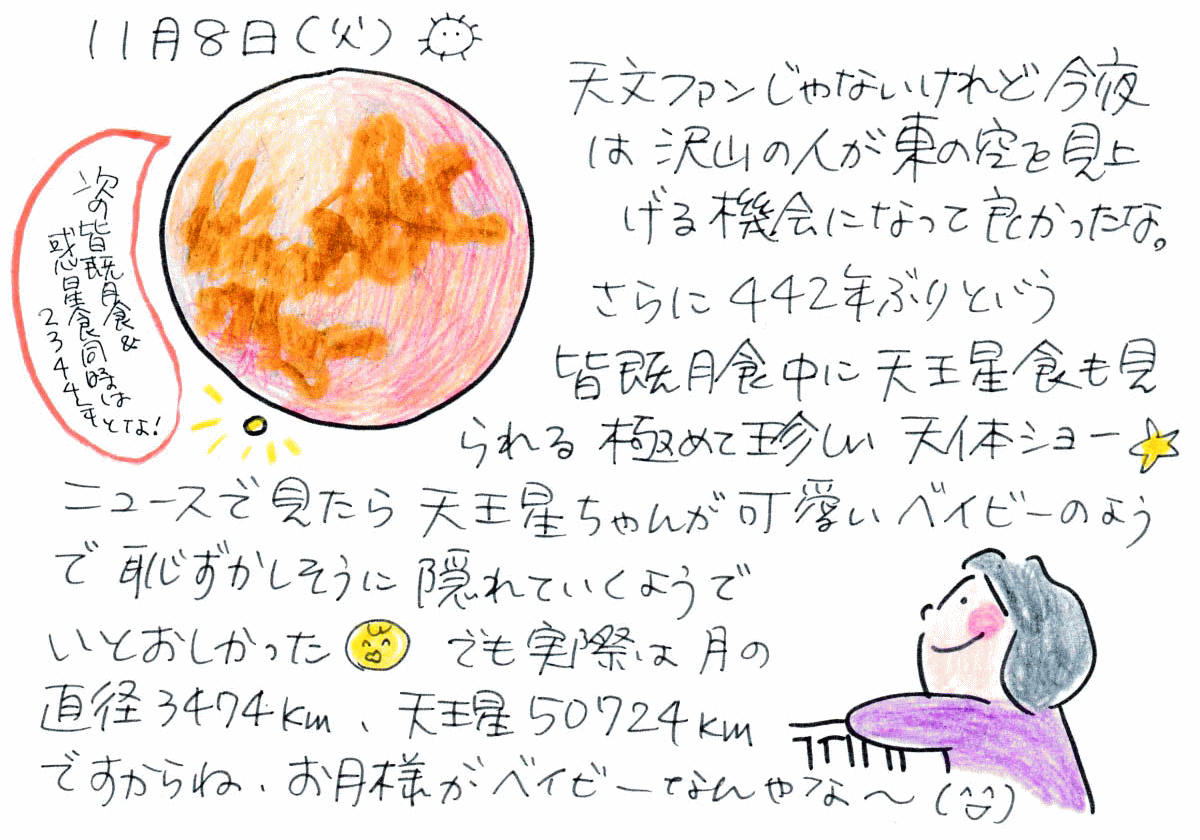 11月8日(火)
次の皆既月食&
惑星食同時は
2344年とな!
天文ファンじゃないけれど今夜
は沢山の人が東の空を見上
げる機会になって良かったな。
さらに442年ぶりという
皆既月食中に天王星食も見
られる極めて珍しい天体ショー
ニュースで見たら天王星ちゃんが可愛いベイビーのよう
で恥ずかしそうに隠れていくようで
いとおしかった でも実際は月の
直径3474km、天王星50724km
ですからね、お月様がベイビーなんやな〜(^^)